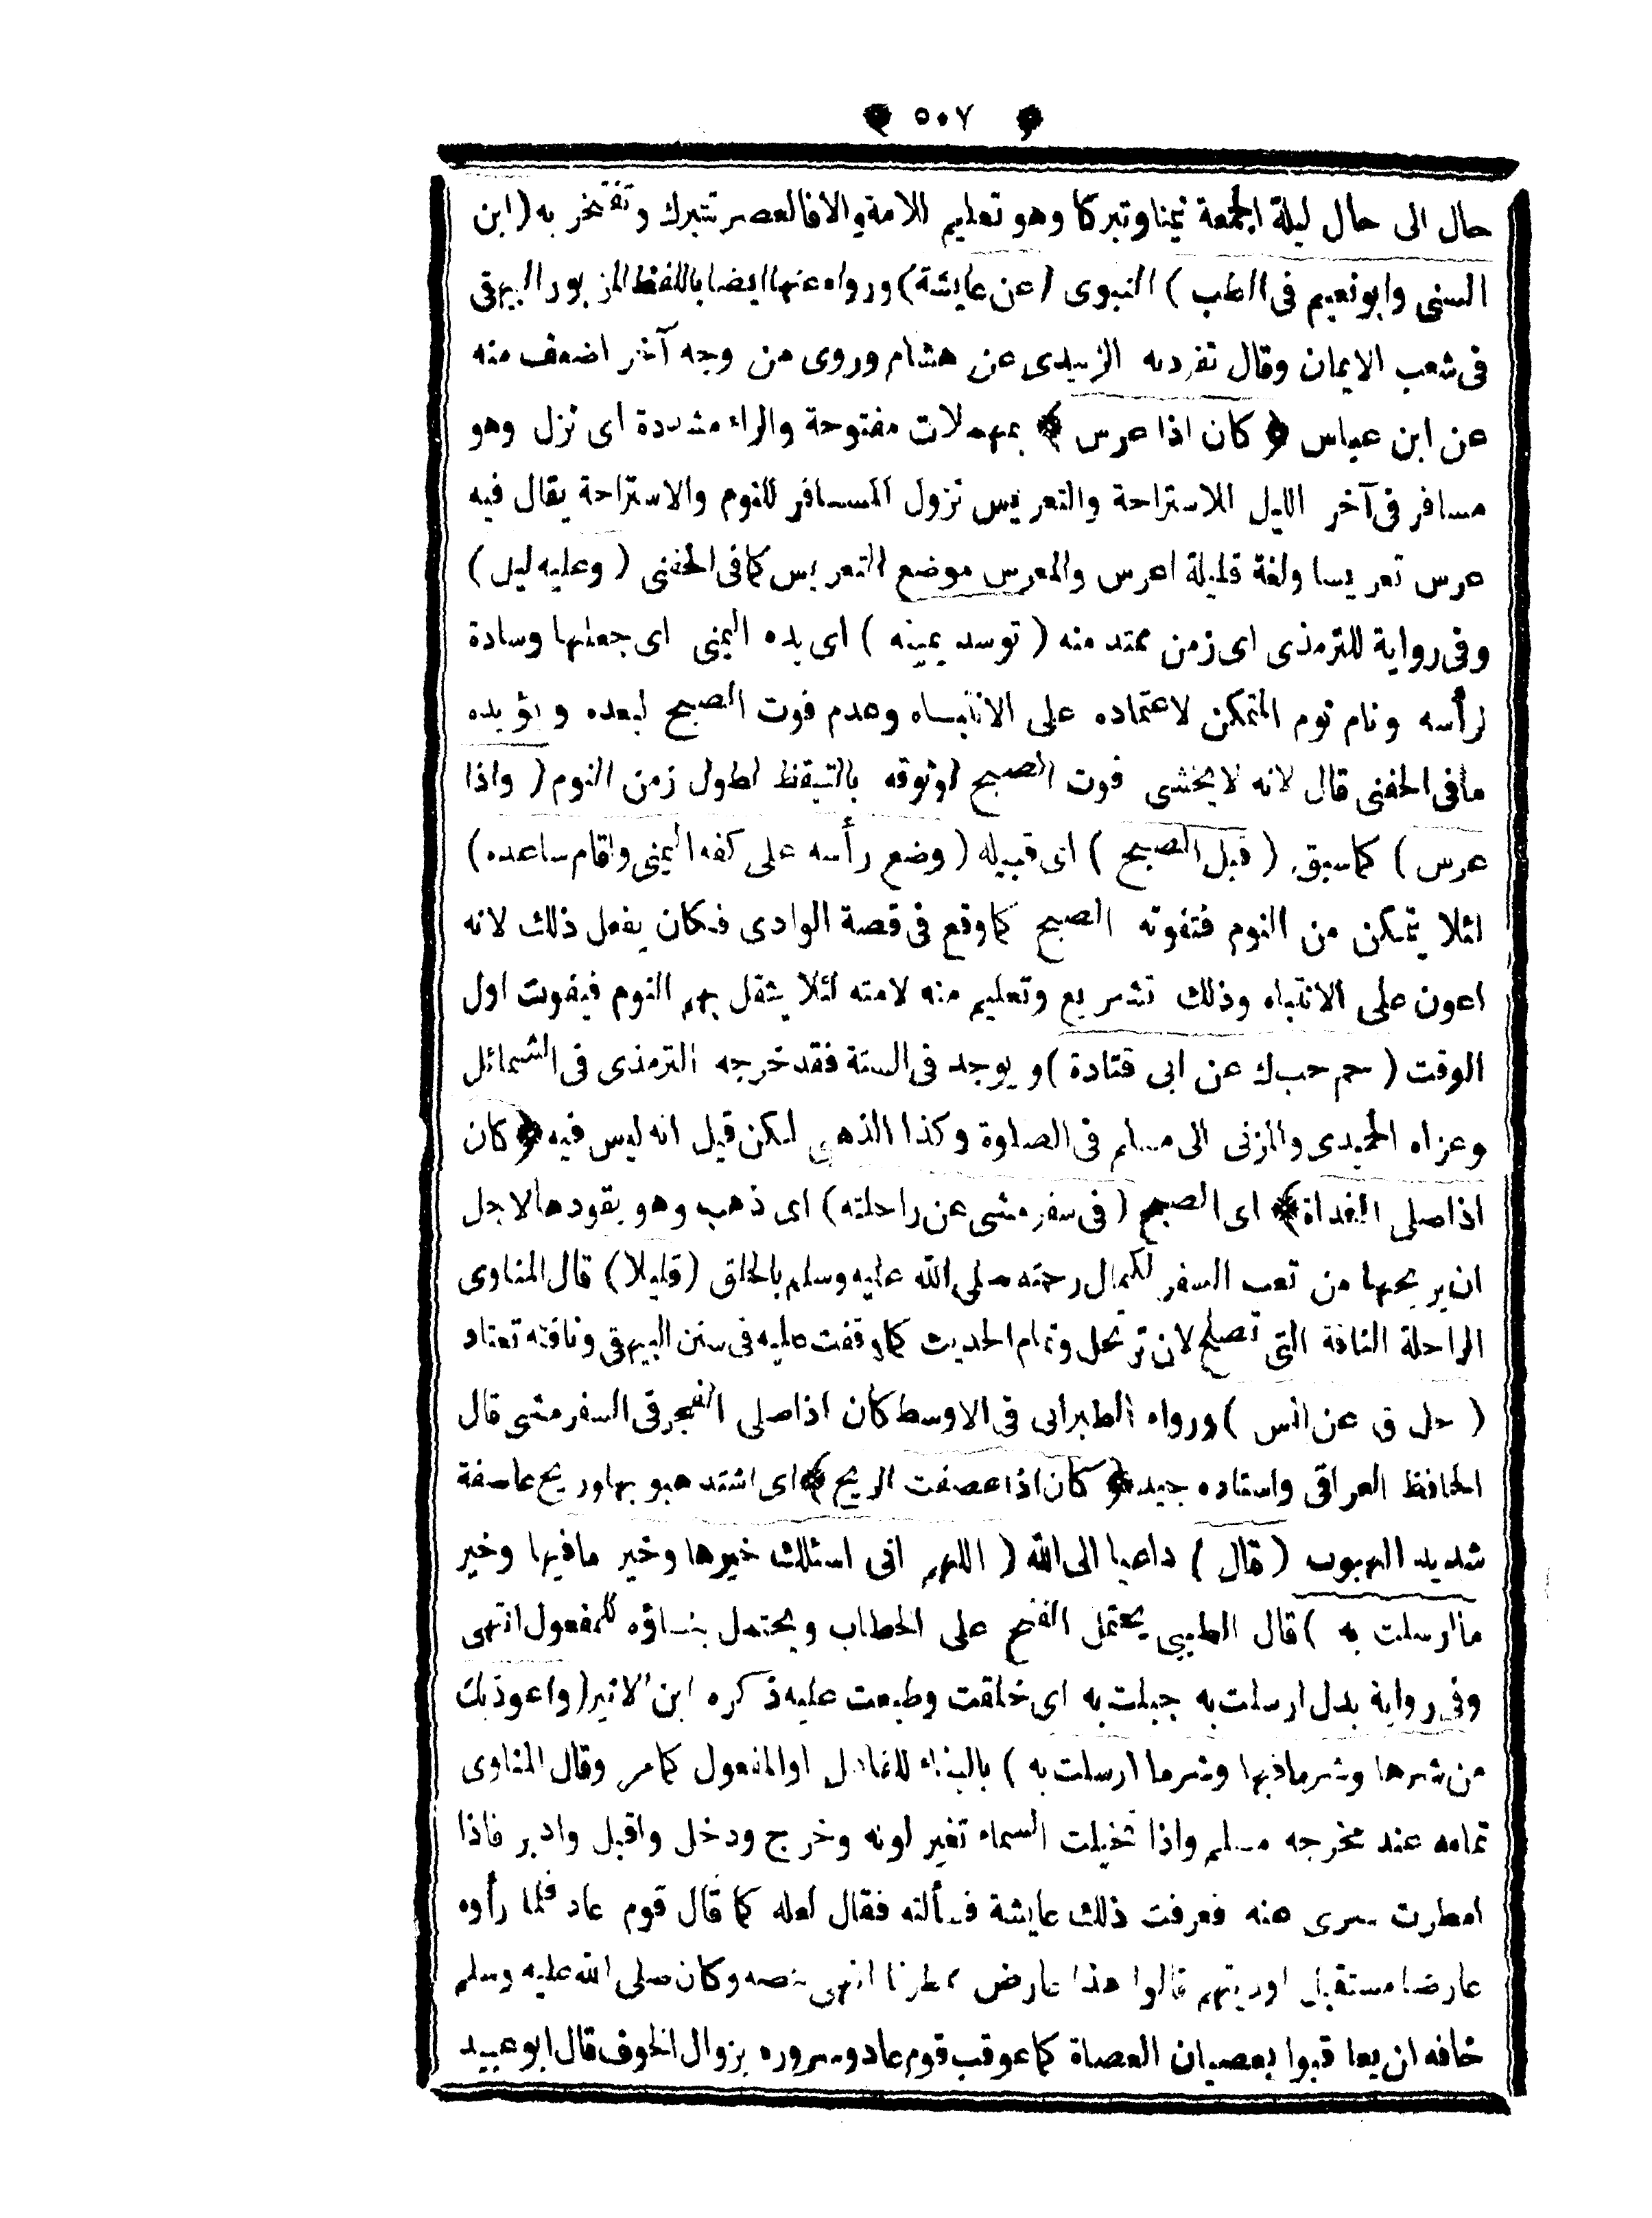 ﴿ ٥٠٧ ﴾
حال الى حال ليلة الجمعة تيمنا وتبركا وهو تعليم للامة والا فالعصر تتبرك وتفتخر به (ابن
السنى وابو نعيم فى الطب) النبوى (عن عايشة) ورواه عنها ايضا باللفظ المزبور البيهقى
فى شعب الايمان وقال تفرد به الزبيدى عن هشام وروى من وجه آخر اضعف منه
عن ابن عباس ﴿ كان اذا عرس ﴾ بمهملات مفتوحة والراء مشددة اى نزل وهو
مسافر فى آخر الليل للاستراحة والتعريس نزول المسافر للنوم والاستراحة يقال فيه
عرس تعريسا ولغة قليلة اعرس والمعرس موضع التعريس كما فى الحفنى (وعليه ليل)
وفى رواية للترمذى اى زمن ممتد منه (توسد يمينه) اى يده اليمنى اى جعلها وسادة
لرأسه ونام نوم المتمكن لاعتماده على الانتباه وعدم فوت الصبح لبعده ويؤيده
ما فى الحفنى قال لانه لا يخشى فوت الصبح لوثوقه بالتيقظ لطول زمن النوم (واذا
عرس) كما سبق (قبل الصبح) اى قبيله (وضع رأسه على كفه اليمنى واقام ساعده)
لئلا يتمكن من النوم فتفوته الصبح كما وقع فى قصة الوادى فكان يفعل ذلك لانه
اعون على الانتباه وذلك تشريع وتعليم منه لامته لئلا يثقل بهم النوم فيفوت اول
الوقت (حم حب ك عن ابى قتادة) ويوجد فى الستة فقد خرجه الترمذى فى الشمائل
وعزاه الحميدى والمزنى الى مسلم فى الصلوة وكذا الذهبى لكن قيل انه ليس فيه ﴿ كان
اذا صلى الغداة ﴾ اى الصبح (فى سفر مشى عن راحلته) اى ذهب وهو يقودها لاجل
ان يريحها من تعب السفر لكمال رحمته صلى الله عليه وسلم بالخلق (قليلا) قال المناوى
الراحلة الناقة التى تصلح لان ترتحل وتمام الحديث كما وقفت عليه فى سنن البيهقى وناقته تعتاد
(حل ق عن انس) ورواه الطبرانى فى الاوسط كان اذا صلى الفجر فى السفر مشى قال
الحافظ العراقى واسناده جيد ﴿ كان اذا عصفت الريح ﴾ اى اشتد هبوبها وريح عاصفة
شديد الهبوب (قال) داعيا الى الله (اللهم انى اسئلك خيرها وخير ما فيها وخير
ما ارسلت به) قال الطيبى يحتمل الفتح على الخطاب ويحتمل بناؤه للمفعول انتهى
وفى رواية بدل ارسلت به جبلت به اى خلقت وطبعت عليه ذكره ابن الاثير (واعوذ بك
من شرها وشر ما فيها وشر ما ارسلت به) بالبناء للفاعل او المفعول كما مر وقال المناوى
تمامه عند مخرجه مسلم واذا تخيلت السماء تغير لونه وخرج ودخل واقبل وادبر فاذا
امطرت سرى عنه فعرفت ذلك عايشة فسألته فقال لعله كما قال قوم عاد فلما رأوه
عارضا مستقبل اوديتهم قالوا هذا عارض ممطرنا انتهى بنصه وكان صلى الله عليه وسلم
خافه ان يعاقبوا بعصيان العصاة كما عوقب قوم عاد وسروره بزوال الخوف قال ابو عبيد